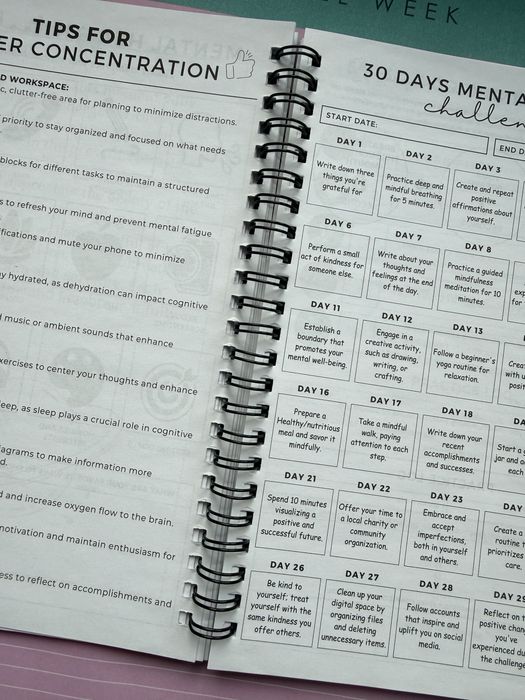 E WEEK
TIPS FOR
ER CONCENTRATION
D WORKSPACE:
c, clutter-free area for planning to minimize distractions.
priority to stay organized and focused on what needs
blocks for different tasks to maintain a structured
s to refresh your mind and prevent mental fatigue
ifications and mute your phone to minimize
y hydrated, as dehydration can impact cognitive
l music or ambient sounds that enhance
xercises to center your thoughts and enhance
eep, as sleep plays a crucial role in cognitive
iagrams to make information more
d.
d and increase oxygen flow to the brain.
motivation and maintain enthusiasm for
ess to reflect on accomplishments and
30 DAYS MENTA
challen
START DATE:
END D
DAY 1
Write down three
things you're
grateful for
DAY 2
Practice deep and
mindful breathing
for 5 minutes.
DAY 3
Create and repeat
positive
affirmations about
yourself.
DAY 6
Perform a small
act of kindness for
someone else.
DAY 7
Write about your
thoughts and
feelings at the end
of the day.
DAY 8
Practice a guided
mindfulness
meditation for 10
minutes.
exp
for
DAY 11
Establish a
boundary that
promotes your
mental well-being.
DAY 12
Engage in a
creative activity,
such as drawing,
writing, or
crafting.
DAY 13
Follow a beginner's
yoga routine for
relaxation.
Crea
with u
posi
DAY 16
Prepare a
Healthy/nutritious
meal and savor it
mindfully.
DAY 17
Take a mindful
walk, paying
attention to each
step.
DAY 18
Write down your
recent
accomplishments
and successes.
DA
Start a g
jar and a
each
DAY 21
Spend 10 minutes
visualizing a
positive and
successful future.
DAY 22
Offer your time to
a local charity or
community
organization.
DAY 23
Embrace and
accept
imperfections,
both in yourself
and others.
DAY
Create a
routine t
prioritizes
care.
DAY 26
Be kind to
yourself; treat
yourself with the
same kindness you
offer others.
DAY 27
Clean up your
digital space by
organizing files
and deleting
unnecessary items.
DAY 28
Follow accounts
that inspire and
uplift you on social
media.
DAY 29
Reflect on t
positive chang
you've
experienced du
the challenge